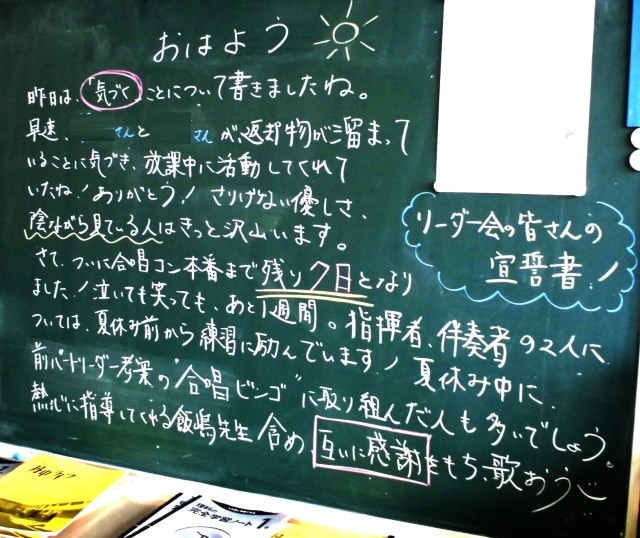 おはよう
昨日は、「気づく」ことについて書きましたね。
早速、 さんと さんが、返却物が溜まって
いることに気づき、放課中に活動してくれて
いたね！ありがとう！さりげない優しさ、
陰ながら見ている人はきっと沢山います。
さて、ついに合唱コン本番まで残り7日となり
ました！泣いても笑っても、あと1週間。指揮者、伴奏者の2人に
ついては、夏休み前から練習に励んでいます！夏休み中に、
前パートリーダー考案の"合唱ビンゴ"に取り組んだ人も多いでしょう。
熱心に指導してくれる飯嶋先生含め、互いに感謝をもち、歌おう
リーダー会の皆さんの
宣誓書！
完全学習ノート 1